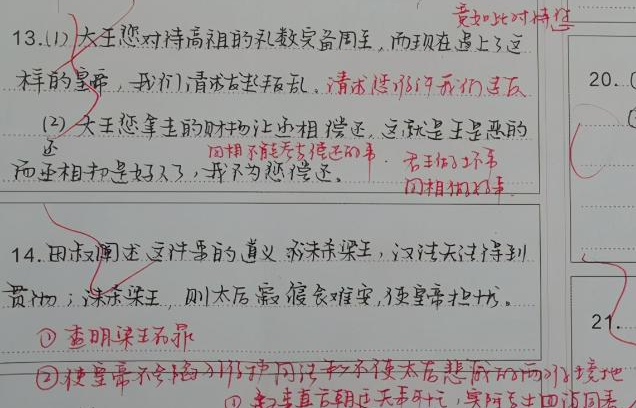 竟如此对待您
13.(1) 大王您对待高祖的礼数完备周至,而现在遇上了这
样的皇帝,我们请求发起叛乱。请求您允许我们造反
20.
(2) 大王您拿走的财物让丞相偿还,这就是王是恶的
而丞相却是好人了,我不为您偿还。
国相不能
君王做坏事
国相做好事
14. 田叔阐述这件事的道义 求未杀梁王,汉法无法得到
贯彻;诛杀梁王,则太后寝食难安,使皇帝担忧。
21.
① 查明梁王有罪
②使皇帝不会陷入维护国法和不使太后悲戚的两难境地